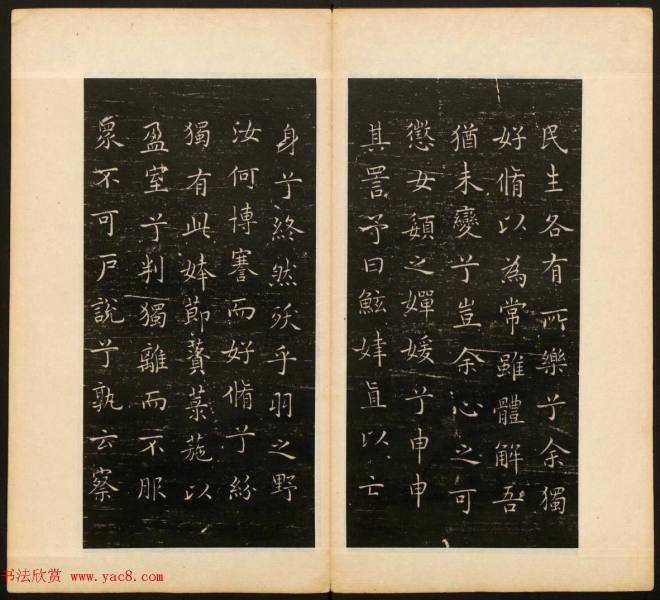 民生各有所樂兮余獨
好脩以為常雖體解吾
猶未變兮豈余心之可
懲女嬃之嬋媛兮申申
其詈予曰鮌婞直以亡
身兮終然殀乎羽之野
汝何博謇而好脩兮紛
獨有此姱節薋菉葹以
盈室兮判獨離而不服
眾不可戶說兮孰云察
书法欣赏 www.yac8.com